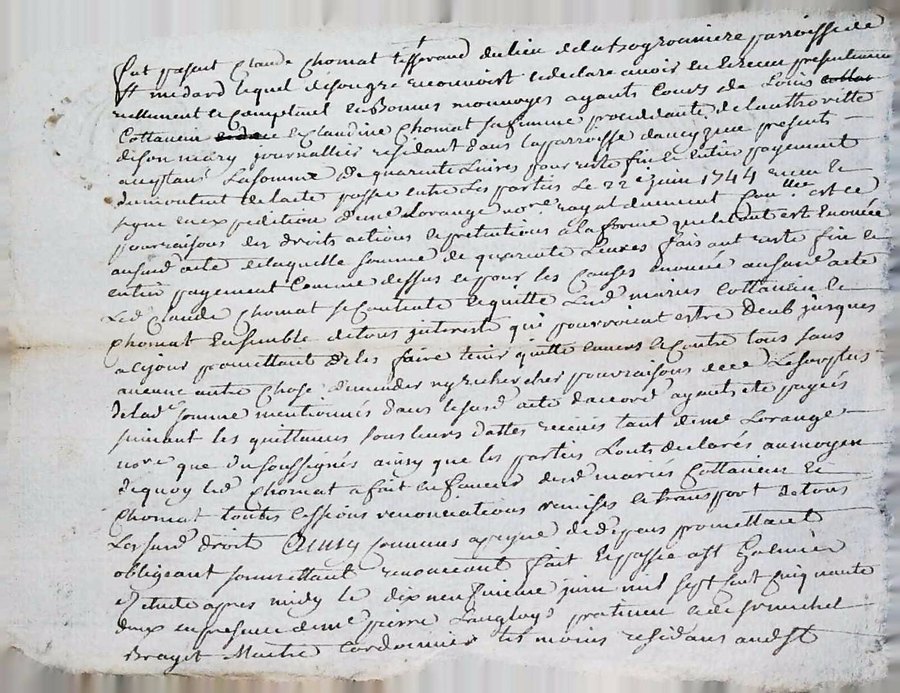 fut presant Claude Chomat tisserand du lieu de la tsogrouniere parroisse de
st medard lequel de son gre reconnoist et declare avoir eu et receu presentement
reellement et comptant en bonnes monnoyes ayants cours de Louis
Cottancin et Claudine Chomat sa femme procedante de l'authoritté
de son mary journallier residant dans la parroisse daveyzieu presents
acceptans La somme de quarente Livres pour reste fin et entier payement
du montent de lacte passé entre Les parties Le 22e juin 1744 receu et
signe en expedition dme Lorange nore royal duement Conlle est ce
pour raisons des droits actions et pretentions a la forme que le tout est Enoncée
ausurd acte de laquelle somme de quarente Livres faisant reste fin et
entier payement comme dessus et pour les Causes enoncée ausurd acte
Led Claude Chomat se contente et quitte Lesd mariés Cottancin et
Chomat Ensemble de tous jnterests qui pourroient estre deub jusques
a ce jour promettant de les faire tenir quitte envers et contre tous sans
aucune autre chose demander ny rechercher pour raisons de ce Le surplus
de lad somme mentionnés dans le surd acte daccord ayants ete payés
suivant les quittances sous leurs dattes receues tant dme Lorange
nore que du soussignés ainsy que les parties L'ont declarés au moyen
de quoy led Chomat a fait en faveur desd mariés Cottancin et
Chomat toutes cessions renonciations remises et transport de tous
Les surd droit Ainsy convenus a peyne de depens promettant
obligeant soumettant renonceant fait et passé a st Galmier
Etude apres midy le dix neufvieme juin mil sept cent cinquante
deux en presence de me pierre Langloys praticien et de sr michel
Brayet Maitre Cordonnier tesmoins residans aud st